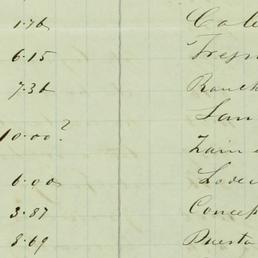 1.76 Cale
6.15 Fresn
7.36 Ranch
San
10.00?
6.00
3.87 Concep
8.69 Puesta